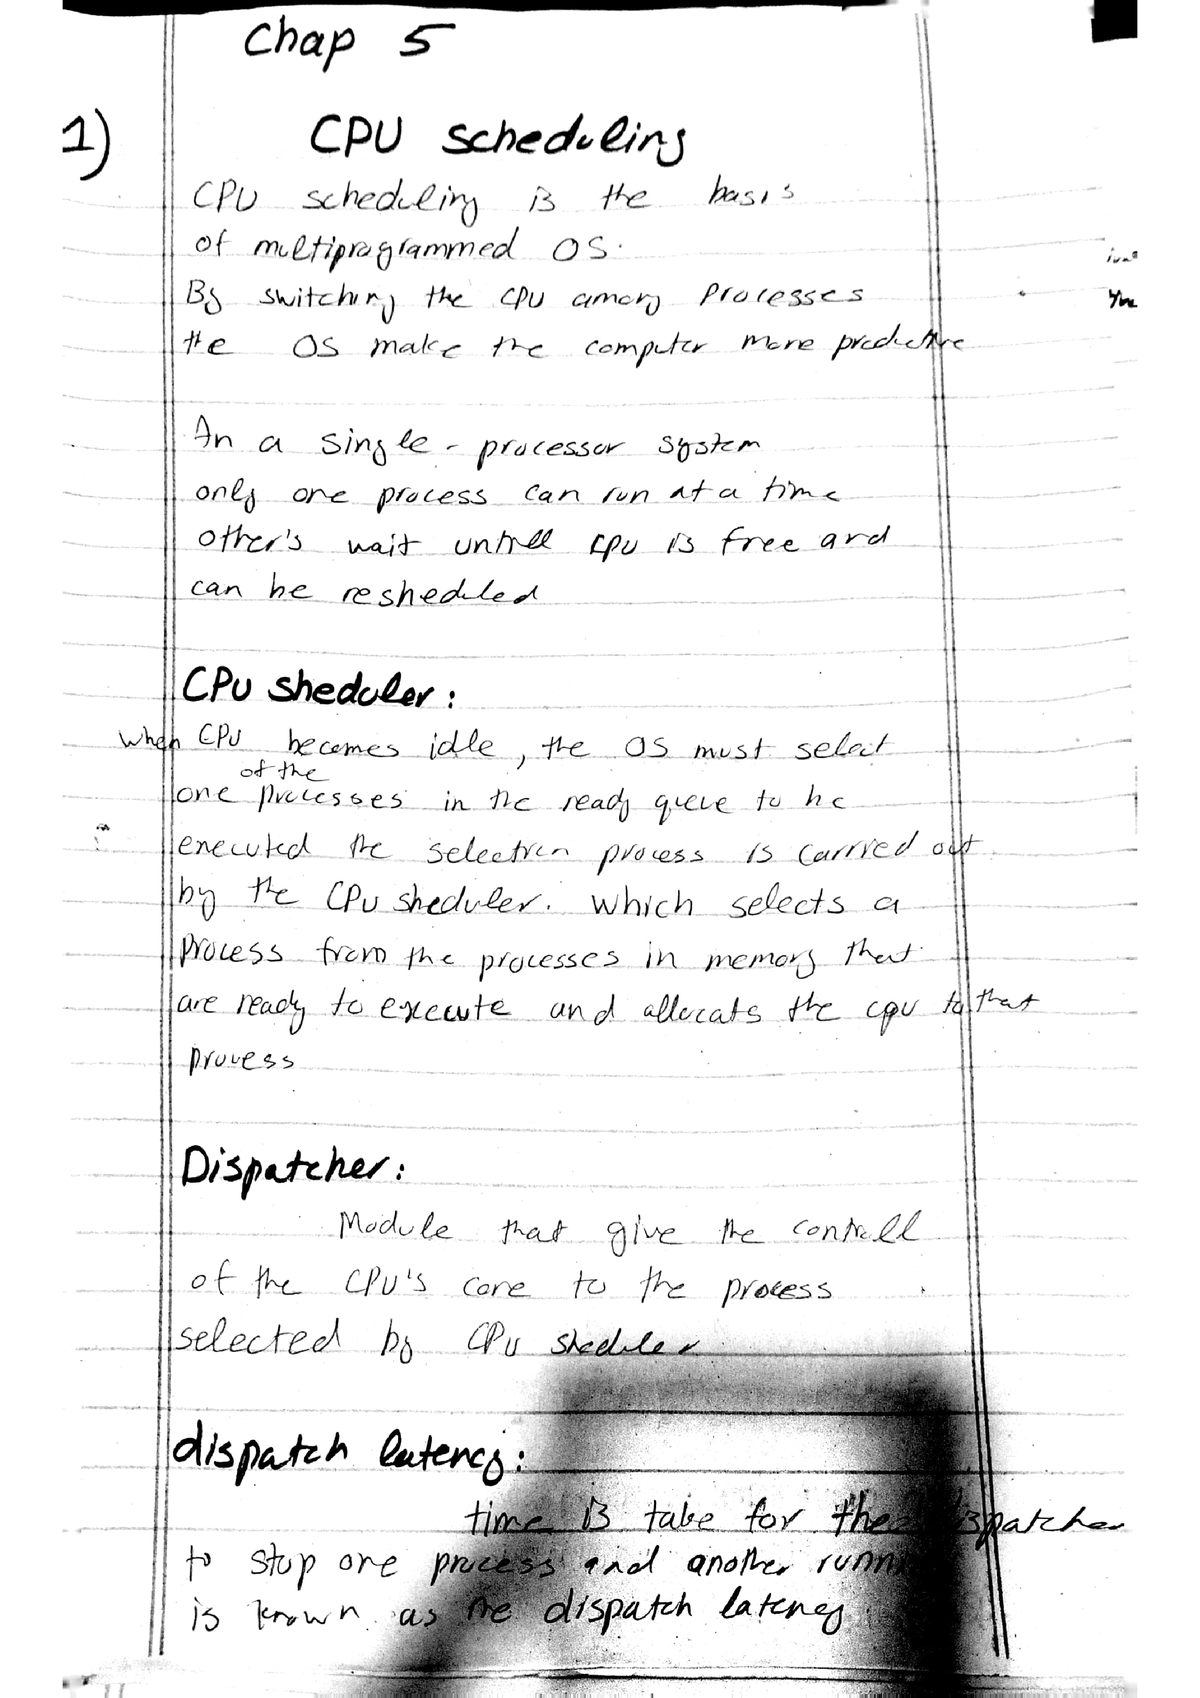 Chap 5
1) CPU scheduling
CPU scheduling is the basis
of multiprogrammed OS.
By switching the CPU among Processes
the OS make the computer more productive
In a single-processor system
only one process can run at a time
other's wait untill cpu is free and
can be resheduled
CPU sheduler:
When CPU becomes idle, the OS must select
of the
one processes in the ready queue to be
executed the selection process is carried out
by the CPU sheduler. which selects a
process from the processes in memory that
are ready to execute and allocats the cpu to that
process
Dispatcher:
Module that give the controll
of the CPU's core to the process
selected by CPU sheduler
dispatch latency:
time is take for the dispatcher
to stop one process and another
is known as the dispatch latency